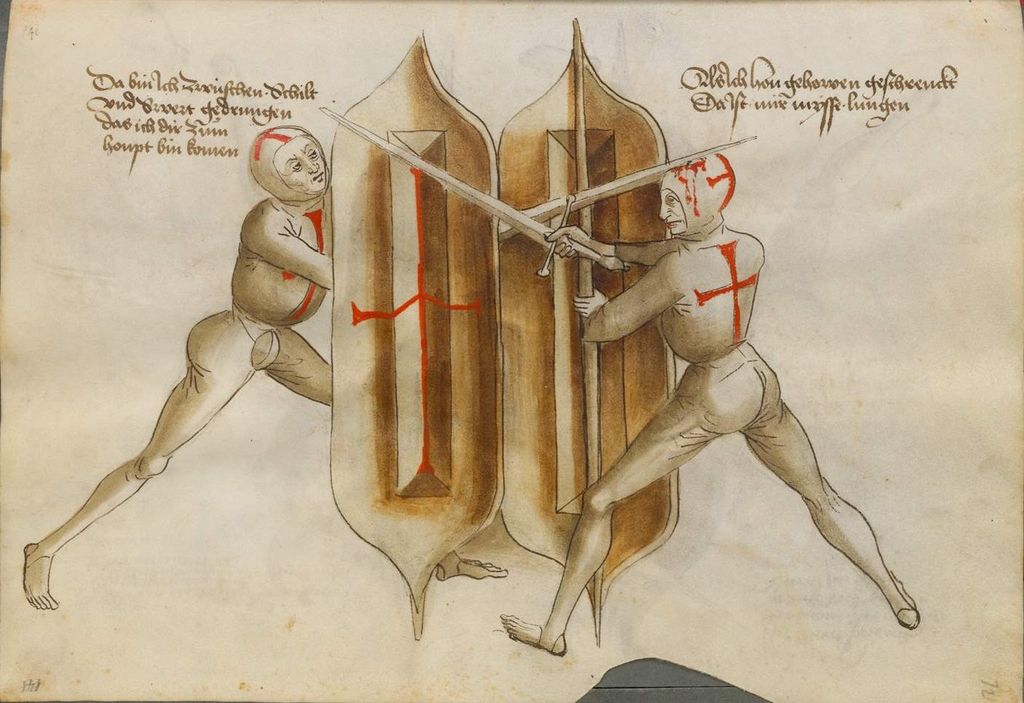 Da bin ich zwüschen Schilt
Vnd Swert gedrungen
das ich dir zum
houpt bin komen
Als ich hon gehowen geschrenckt
Da ist mir mysse lungen